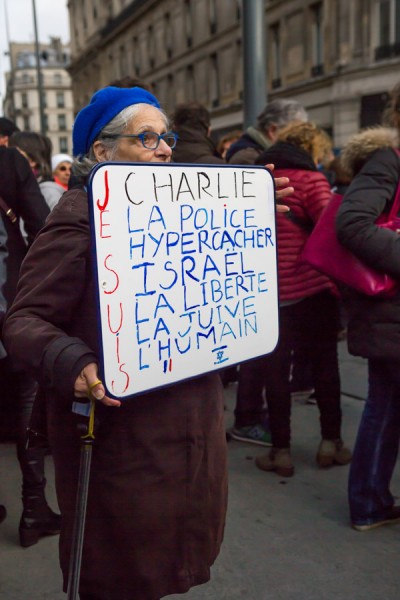 JE SUIS
CHARLIE
LA POLICE
HYPERCACHER
ISRAËL
LA LIBERTE
LA JUIVE
L'HUMAIN
!!